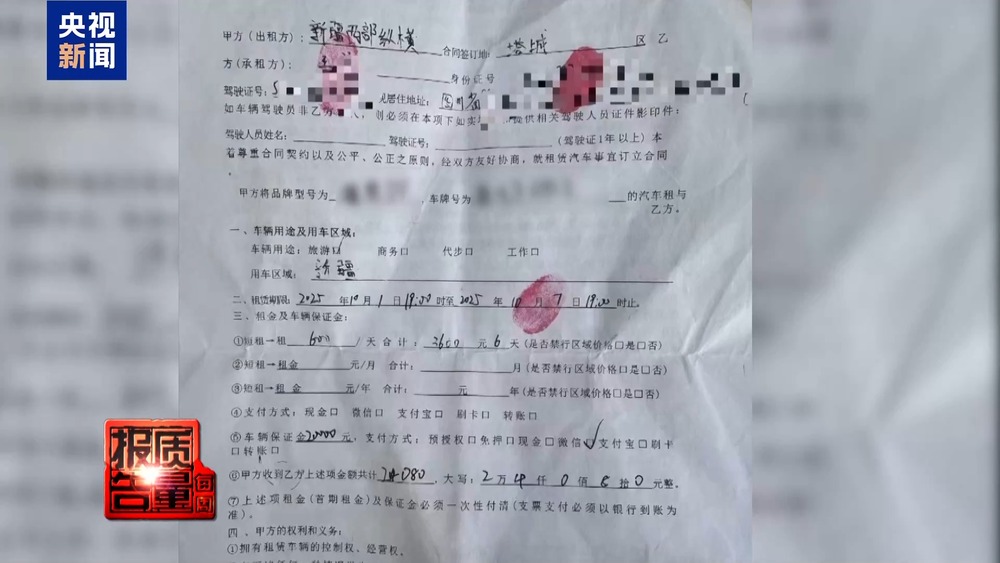 央视
新闻
甲方（出租方）：新疆西部纵横 合同签订地：塔城 区 乙
方（承租方）： 身份证号
驾驶证号： 居住地址：四川省
如车辆驾驶员非乙方 人， 则必须在本项下如实 提供相关驾驶人员证件影印件：
驾驶人员姓名： 驾驶证号： （驾驶证1年以上）本
着尊重合同契约以及公平、公正之原则，经双方友好协商，就租赁汽车事宜订立合同
。
甲方将品牌型号为 ，车牌号为 的汽车租与
乙方。
一、车辆用途及用车区域：
车辆用途：旅游口 商务口 代步口 工作口
用车区域：新疆
二、租赁期限：2025 年10月1日19:00时至2025 年 10月7日19:00时止。
三、租金及车辆保证金：
①短租→租 600 /天 合计：3600 元 6 天（是否禁行区域价格口是口否）
②短租→租金 元/月 合计： 月（是否禁行区域价格口是口否）
③短租→租金 元/年 合计： 元 年（是否禁行区域价格口是口否）
④支付方式：现金口 微信口 支付宝口 刷卡口 转账口
⑤车辆保证金20000元，支付方式：预授权口免押口现金口微信✓支付宝口刷卡
口转账口
⑥甲方收到乙方上述项金额共计24080，大写：2万4仟0佰8拾0元整。
⑦上述项租金（首期租金）及保证金必须一次性付清（支票支付必须以银行到账为
准）。
四、甲方的权利和义务：
①拥有租赁车辆的控制权、经营权。
每周
质量
报告